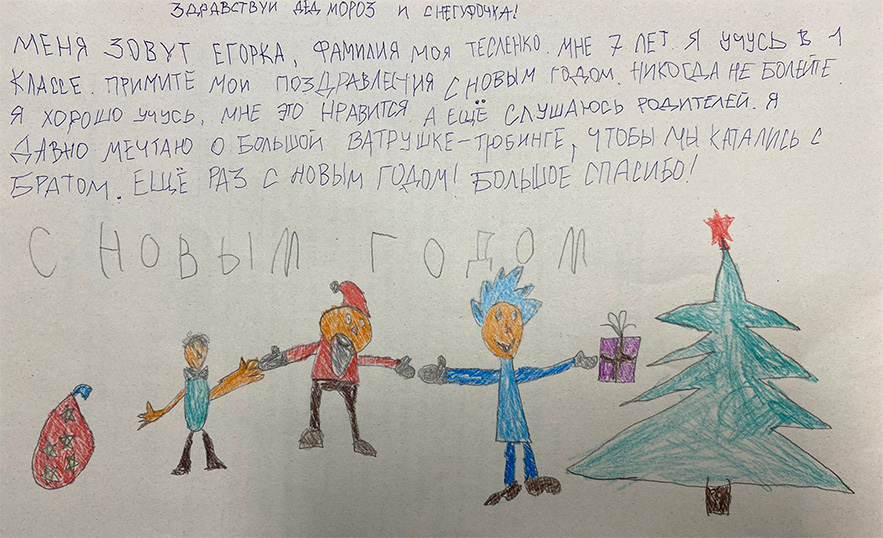 ЗДРАВСТВУЙ ДЕД МОРОЗ И СНЕГУРОЧКА!
МЕНЯ ЗОВУТ ЕГОРКА, ФАМИЛИЯ МОЯ ТЕСЛЕНКО. МНЕ 7 ЛЕТ. Я УЧУСЬ В 1
КЛАССЕ. ПРИМИТЕ МОИ ПОЗДРАВЛЕНИЯ С НОВЫМ ГОДОМ. НИКОГДА НЕ БОЛЕЙТЕ.
Я ХОРОШО УЧУСЬ, МНЕ ЭТО НРАВИТСЯ. А ЕЩЁ СЛУШАЮСЬ РОДИТЕЛЕЙ. Я
ДАВНО МЕЧТАЮ О БОЛЬШОЙ ВАТРУШКЕ-ТЮБИНГЕ, ЧТОБЫ МЫ КАТАЛИСЬ С
БРАТОМ. ЕЩЁ РАЗ С НОВЫМ ГОДОМ! БОЛЬШОЕ СПАСИБО!
С НОВЫМ ГОДОМ